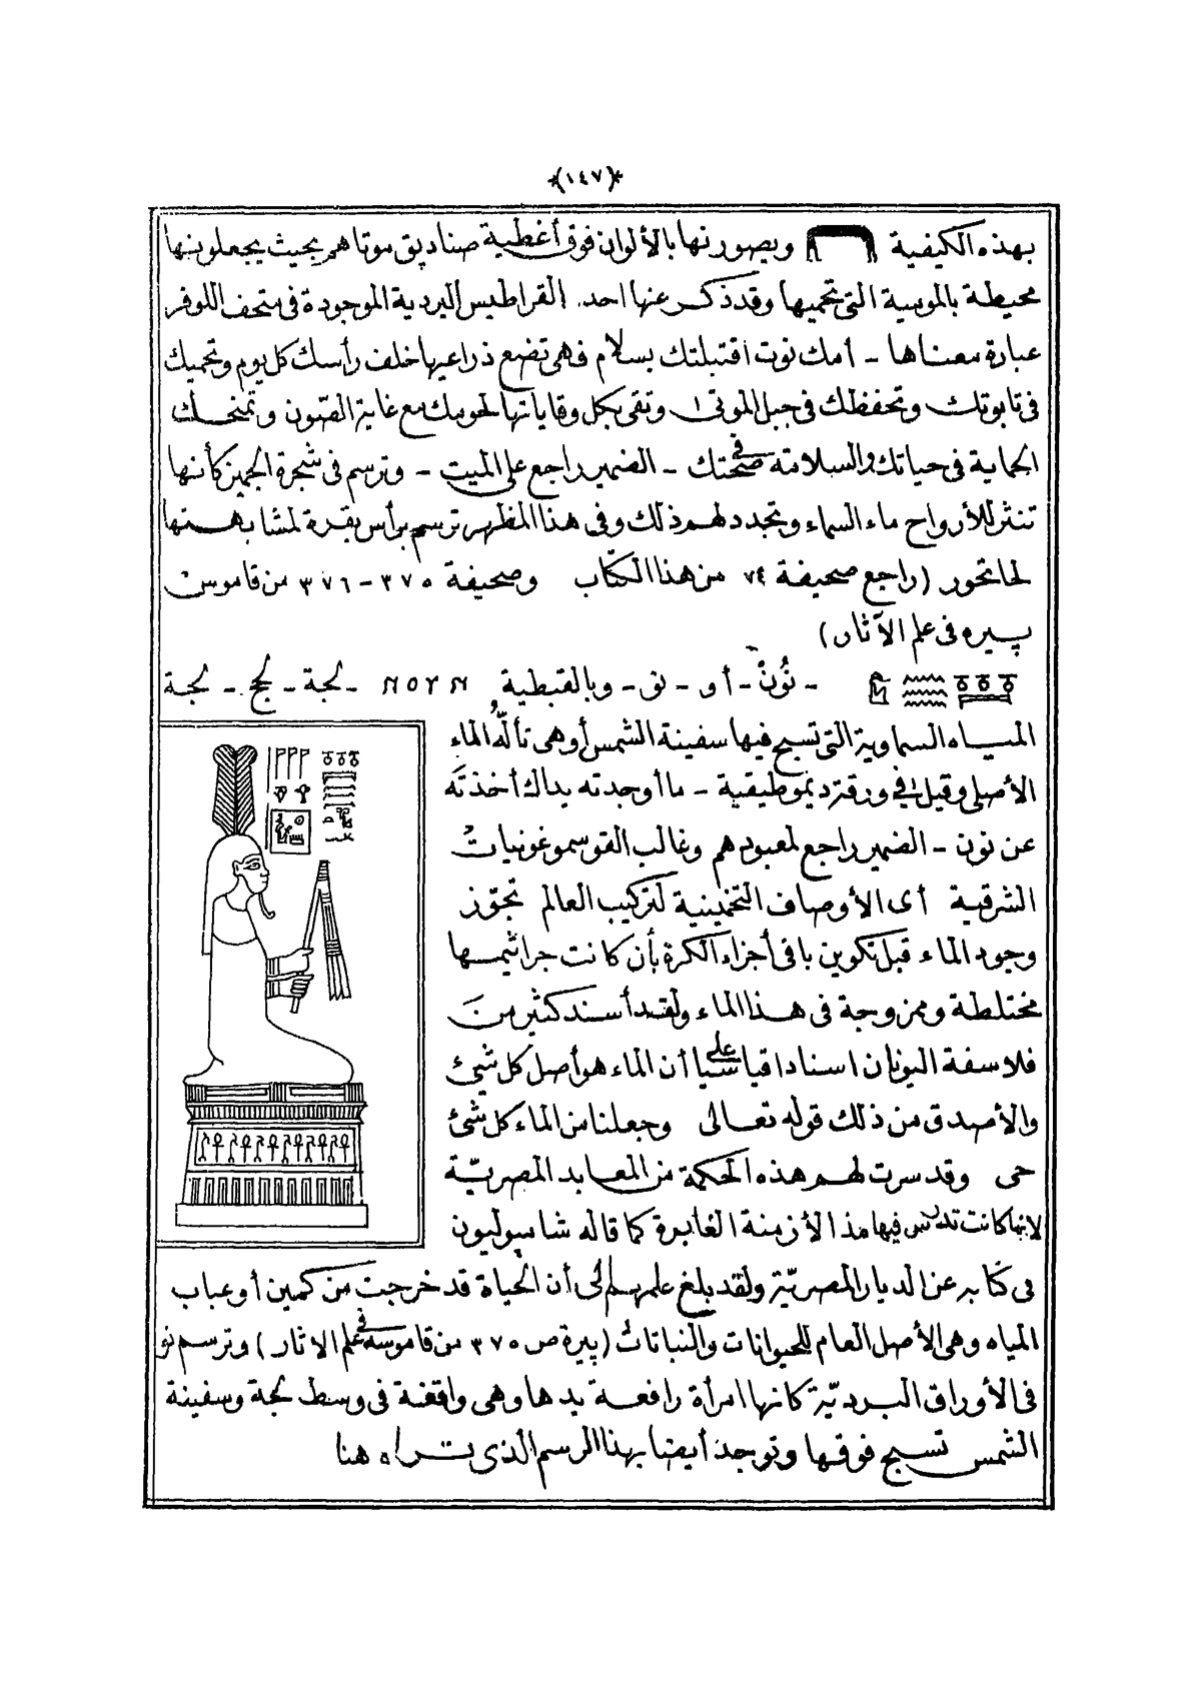 *(١٤٧)*
بهذه الكيفية ويصورنها بالألوان فوق أغطية صناديق موتاهم بحيث يجعلونها
محيطة بالمومية التى تحميها وقد ذكر عنها احد القراطيس البردية الموجودة فى متحف اللوفر
عبارة معناها - أمك نوت اقتبلتك بسلام فهى تضع ذراعيها خلف رأسك كل يوم وتحميك
فى تابوتك وتحفظك فى جبل الموتى وتقى بكل وقاياتها لحومك مع غاية الصون وتمنحك
الحماية فى حياتك والسلامة فى صحتك - الضمير راجع على الميت - وترسم فى شجرة الجميز كأنها
تنثر للأرواح ماء السماء وتجدد لهم ذلك وفى هذا المظهر ترسم برأس بقرة لمشابهتها
لحاتحور (راجع صحيفة ٧٤ من هذا الكتاب وصحيفة ٣٧٥-٣٧٦ من قاموس
پيره فى علم الآثار)
- نُونْ - أو - نو - وبالقبطية ⲛⲟⲩⲛ - لجة - لج - لجة
المياه السماوية التى تسبح فيها سفينة الشمس أو هى تألّه الماء
الأصلى وقيل فى ورقة ديموطيقية - ما أوجدته يداك أخذته
عن نون - الضمير راجع لمعبودهم وغالب القوسموغونيات
الشرقية أى الأوصاف التخمينية لتركيب العالم تجوّز
وجود الماء قبل تكوين باقى أجزاء الكرة بأن كانت جراثيمها
مختلطة وممزوجة فى هذا الماء ولقد أسند كثير من
فلاسفة اليونان اسنادا قياسيا على أن الماء هو أصل كل شئ
والأصدق من ذلك قوله تعالى وجعلنا من الماء كل شئ
حى وقد سرت لهم هذه الحكمة من المعابد المصريّة
لانها كانت تدرس فيها مذ الأزمنة الغابرة كما قاله شامپوليون
فى كتابه عن الديار المصريّة ولقد بلغ علمهم الى أن الحياة قد خرجت من كمين أو عباب
المياه وهى الأصل العام للحيوانات والنباتات (پيرة ص ٣٧٥ من قاموسه فى علم الاثار) وترسم نو
فى الأوراق البرديّة كانها امرأة رافعة يدها وهى واقفة فى وسط لجة وسفينة
الشمس تسبح فوقها وتوجد أيضا بهذا الرسم الذى تراه هنا